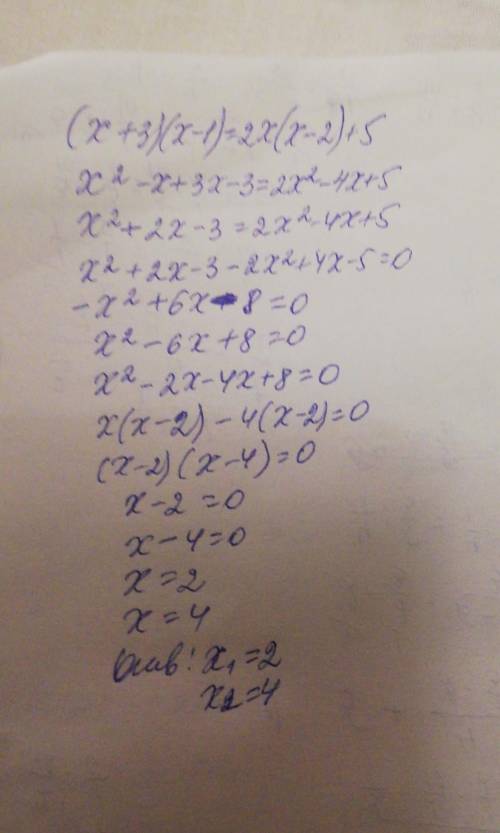 (x+3)(x-1)=2x(x-2)+5
x² -x+3x-3=2x²-4x+5
x²+2x-3=2x²-4x+5
x²+2x-3-2x²+4x-5=0
-x²+6x-8=0
x²-6x+8=0
x²-2x-4x+8=0
x(x-2)-4(x-2)=0
(x-2)(x-4)=0
x-2=0
x-4=0
x=2
x=4
Отв: x₁=2
x₂=4